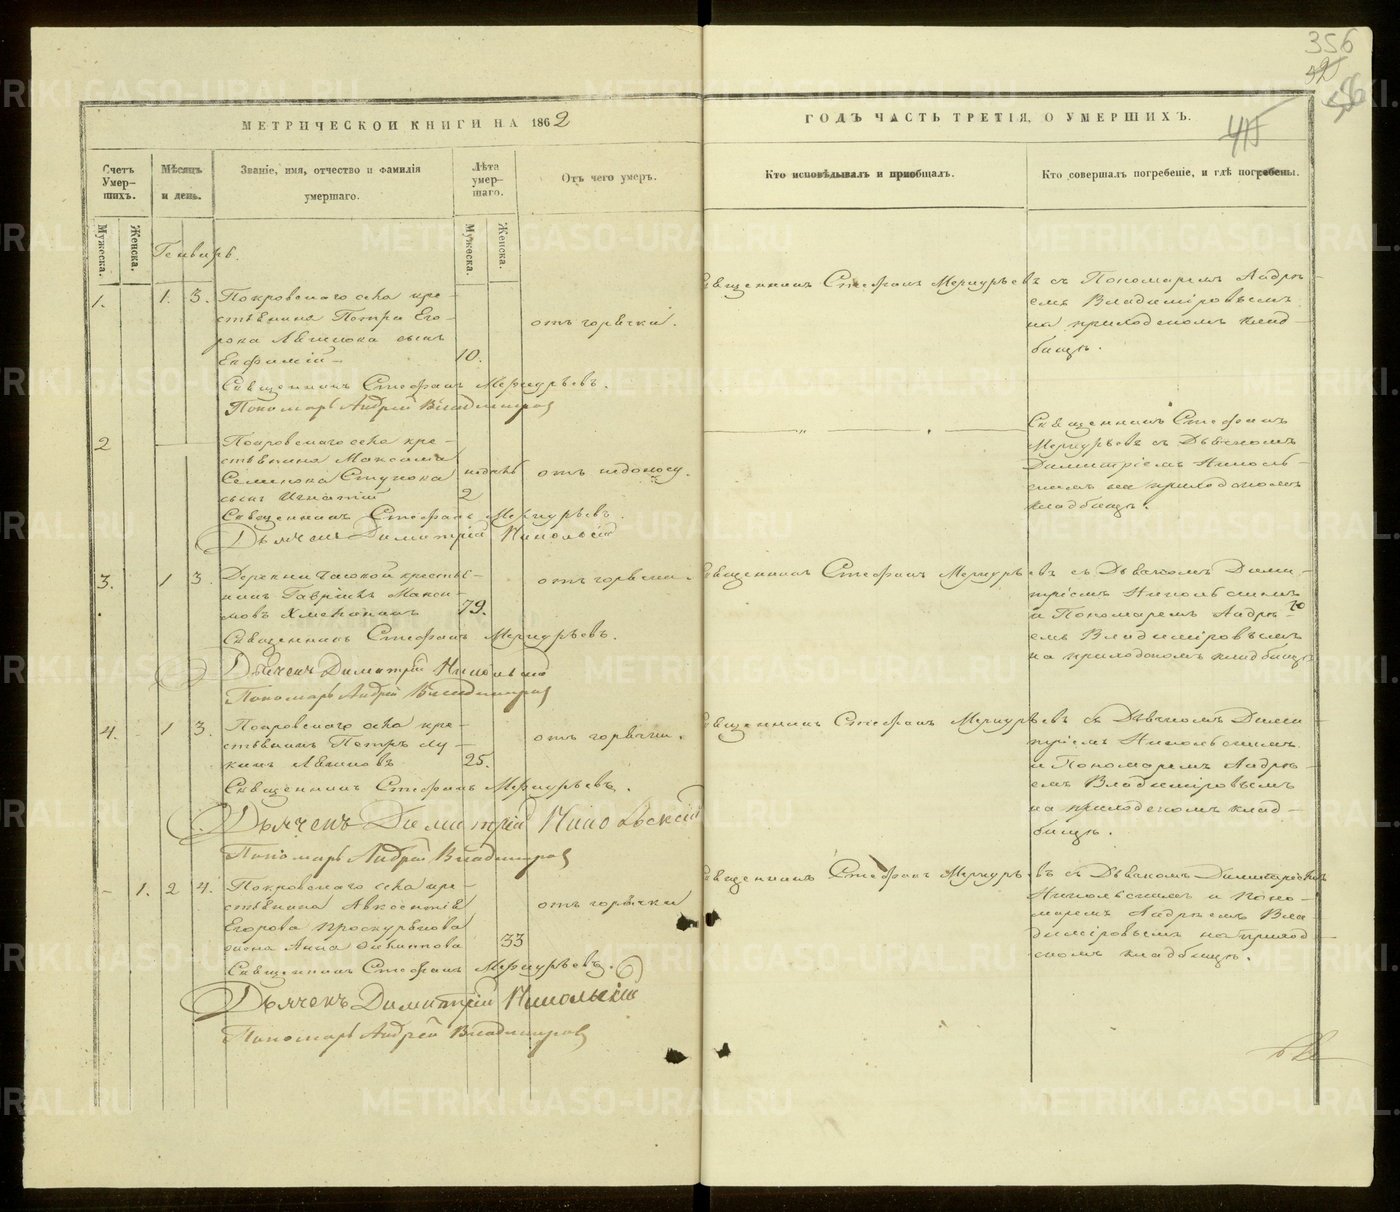 356
МЕТРИЧЕСКОЙ КНИГИ НА 1862
ГОДЪ ЧАСТЬ ТРЕТІЯ, О УМЕРШИХЪ.
Счетъ Умер-шихъ.
Мѣсяцъ и день.
Званіе, имя, отчество и фамилія умершаго.
Лѣта умер-шаго.
Отъ чего умеръ.
Кто исповѣдывалъ и приобщалъ.
Кто совершалъ погребеніе, и гдѣ погребены.
Мужеска.
Женска.
Мужеска.
Женска.
Генварь.
1.
1.
3.
Покровскаго села кре-
стьянина Петра Его-
рова сынъ
Евфимій
10.
отъ горячки.
Священникъ Стефанъ Меркурьевъ.
Пономарь Андрей Владимиров
Священникъ Стефанъ Меркурьевъ съ Пономаремъ Андре-
емъ Владиміровымъ
на приходскомъ клад-
бищѣ.
2
Покровскаго села кре-
стьянина Максима
Семенова
сынъ Игнатій
недѣль
2
отъ недоносу.
Священникъ Стефанъ Меркурьевъ.
Дьячекъ Димитрій Никольскій
Священникъ Стефанъ
Меркурьевъ съ Дьячкомъ
Димитріемъ Николь-
скимъ на приходскомъ
кладбищѣ.
3.
1
3.
Деревни кресть-
янинъ Гавріилъ Макси-
мовъ
79.
отъ горячки.
Священникъ Стефанъ Меркурьевъ.
Дьячекъ Димитрій Никольскій
Пономарь Андрей Владимиров
Священникъ Стефанъ Меркурьевъ съ Дьячкомъ Дими-
тріемъ Никольскимъ
и Пономаремъ Андре-
емъ Владиміровымъ
на приходскомъ кладбищѣ
4.
1
3.
Покровскаго села кре-
стьянинъ Петръ Лу-
кинъ
25.
отъ горячки.
Священникъ Стефанъ Меркурьевъ.
Дьячекъ Димитрій Никольскій
Пономарь Андрей Владимиров
Священникъ Стефанъ Меркурьевъ съ Дьячкомъ Дими-
тріемъ Никольскимъ
и Пономаремъ Андре-
емъ Владиміровымъ
на приходскомъ клад-
бищѣ.
1.
2
4.
Покровскаго села кре-
стьянина Авксентія
Егорова Проскурякова
жена Анна Филиппова
33
отъ горячки
Священникъ Стефанъ Меркурьевъ.
Дьячекъ Димитрій Никольскій
Пономарь Андрей Владимиров
Священникъ Стефанъ Меркурьевъ съ Дьячкомъ Димитріемъ
Никольскимъ и Поно-
маремъ Андреемъ Вла
диміровымъ на приход-
скомъ кладбищѣ.
METRIKI.GASO-URAL.RU